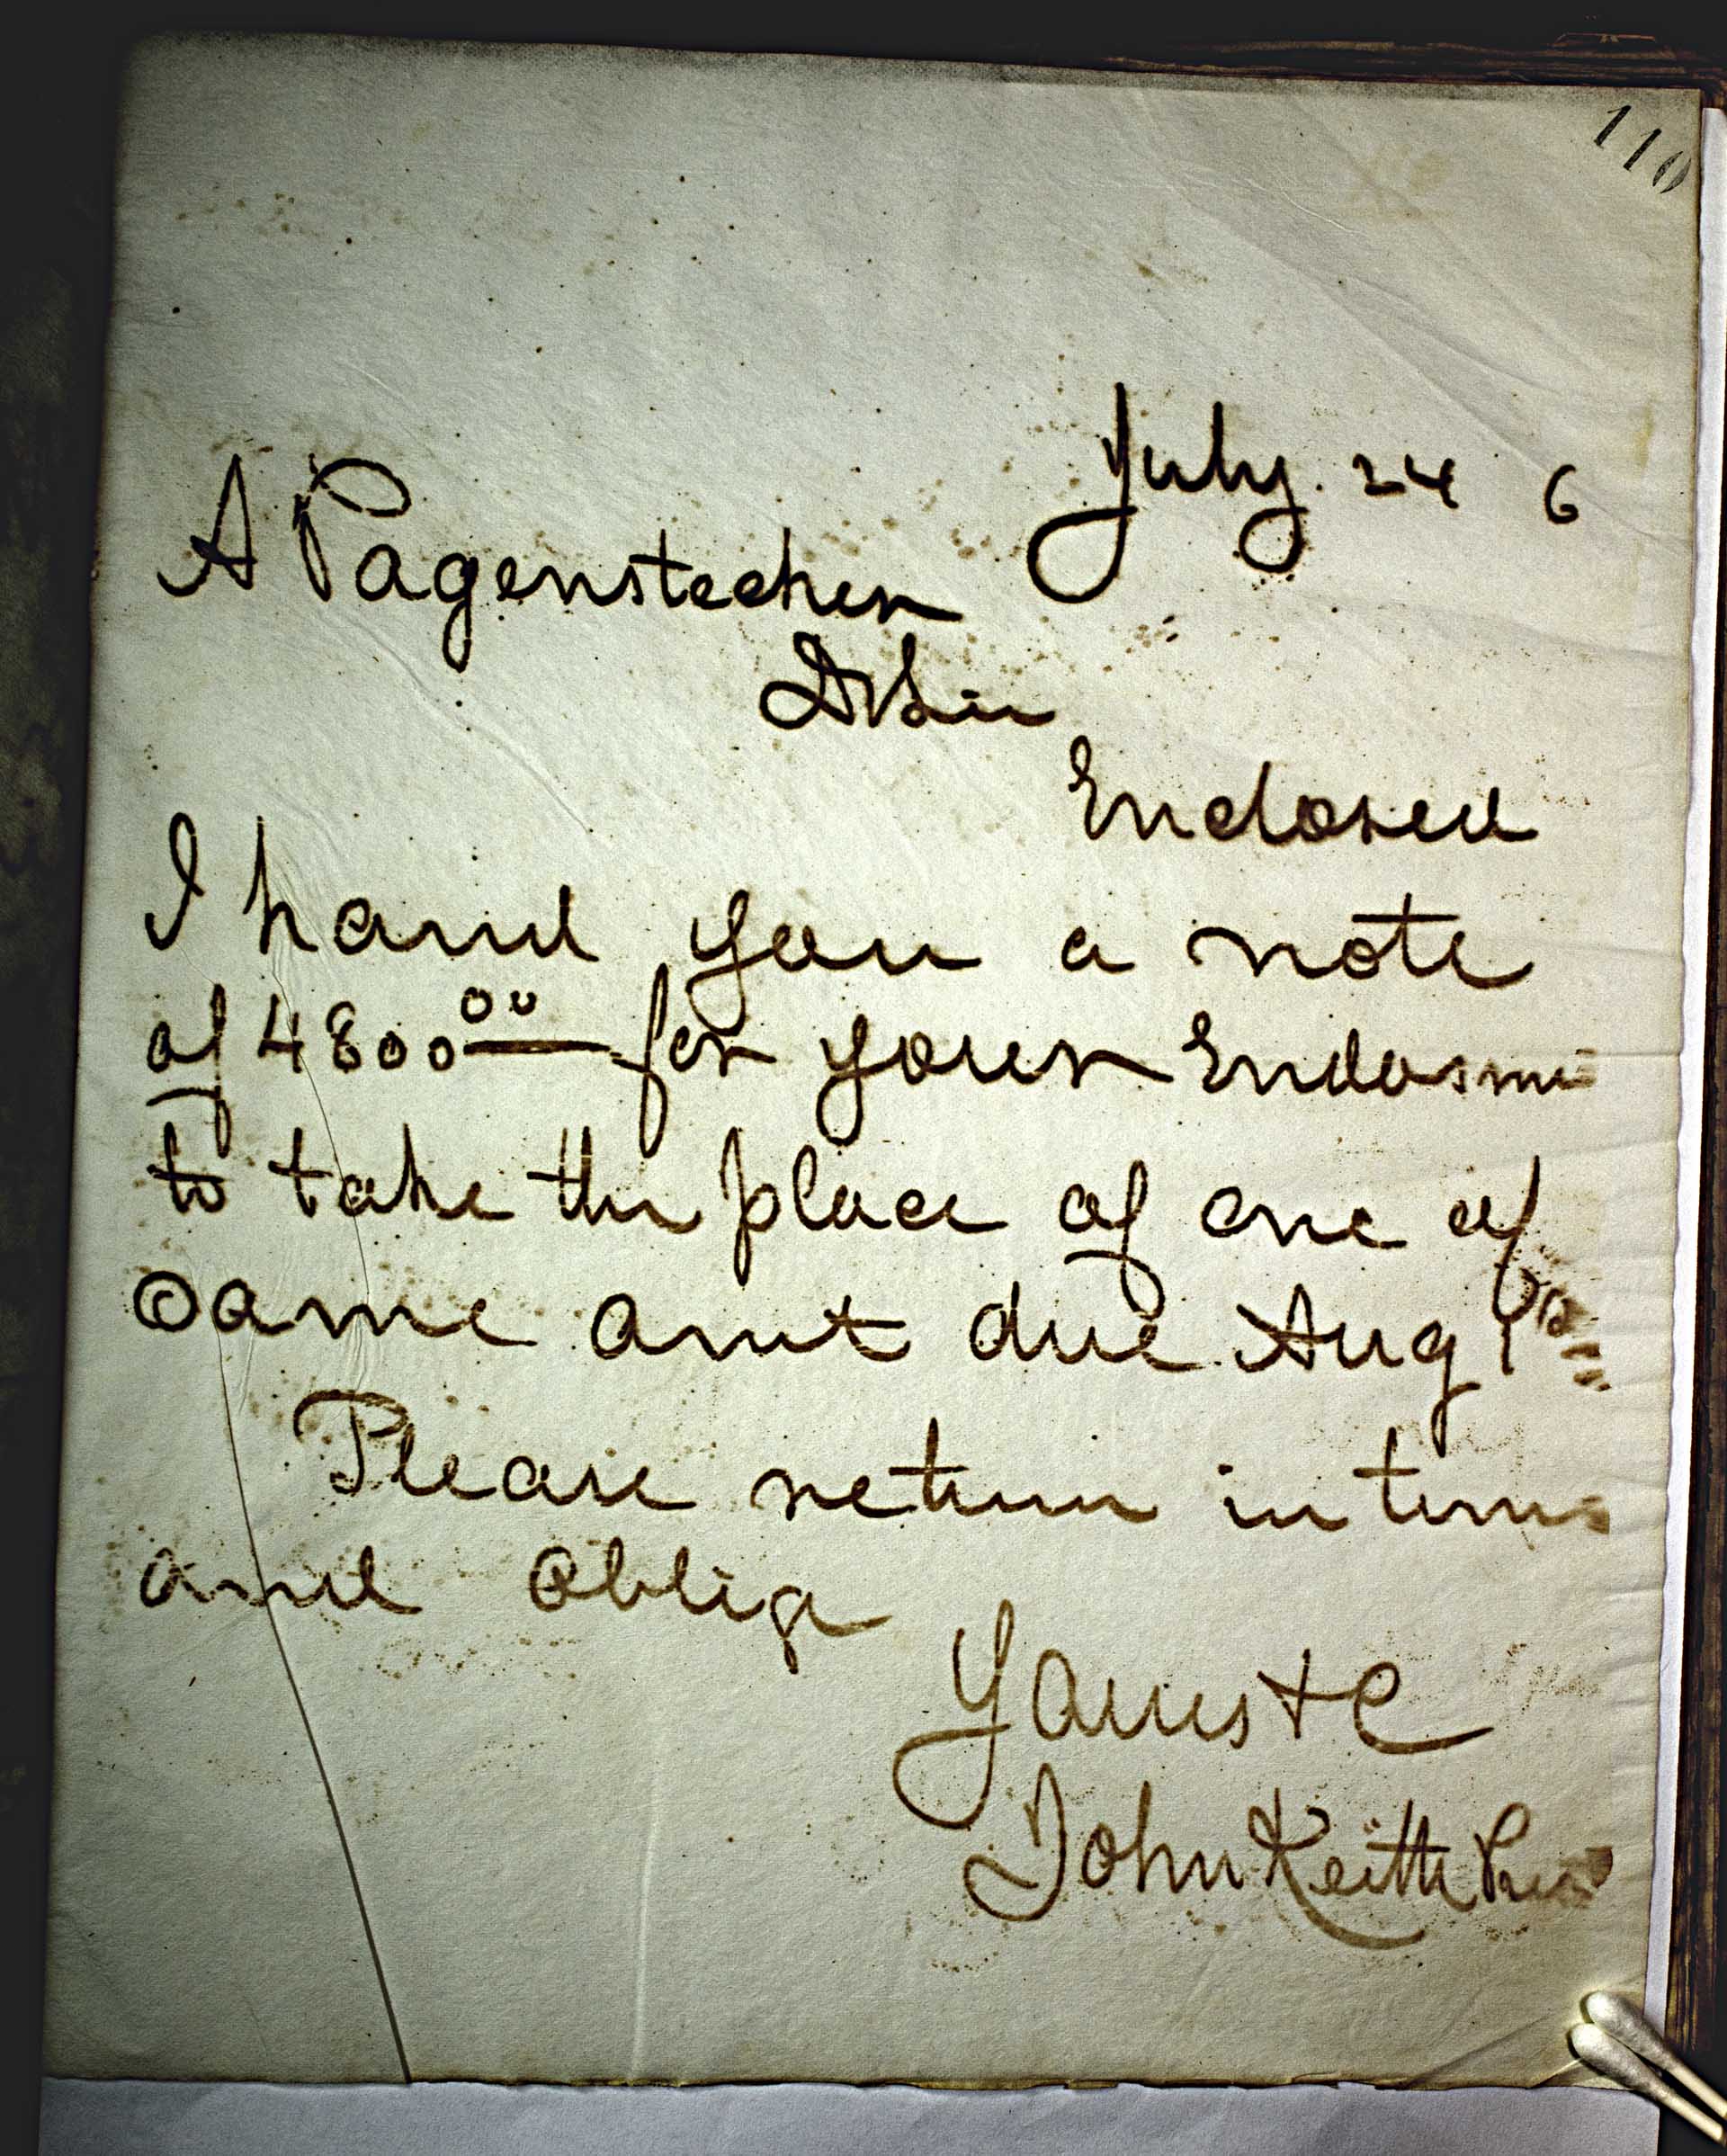 110
July. 24 6
A Pagenstecher
Dr Sir
Enclosed
I hand you a note
of 4800 00 for your Endosm
to take the place of one of
same amt due Aug
Please return in turn
and oblige
Yours + C
John Keith